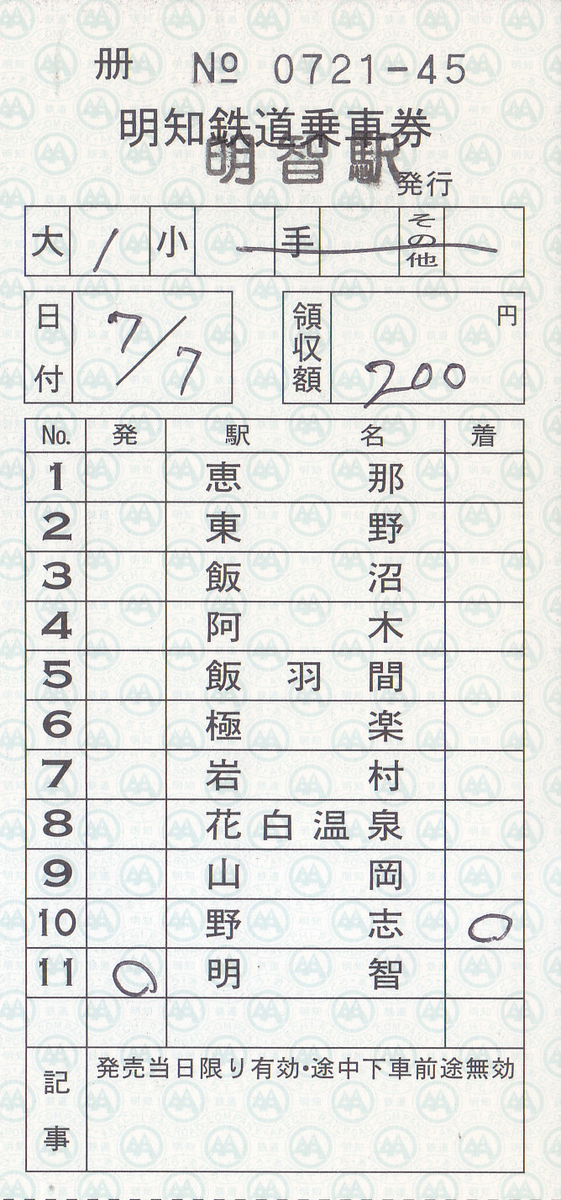 册 № 0721-45
明知鉄道乗車券
明智駅
発行
大 1 小 手 その他
日付 7/7 領収額 200 円
No. 発 駅名 着
1 恵那
2 東野
3 飯沼
4 阿木
5 飯羽間
6 極楽
7 岩村
8 花白温泉
9 山岡
10 野志 ○
11 ○ 明智
記事 発売当日限り有効・途中下車前途無効